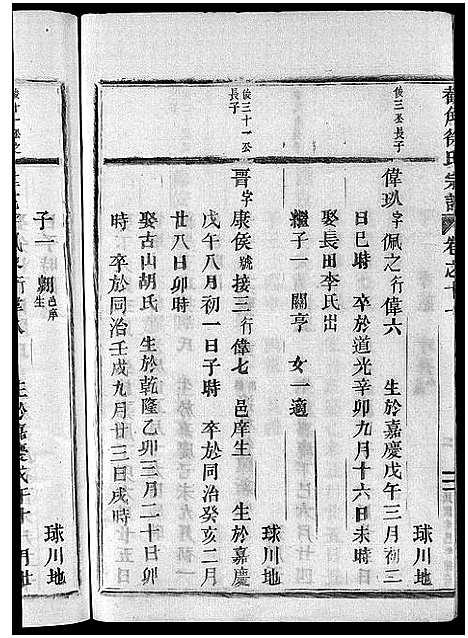 徐氏宗譜 卷之十
俊三公長子
球川地
偉玖字佩之行偉六 生於嘉慶戊午三月初三
日巳時 卒於道光辛卯九月十六日未時
娶長田李氏出
繼子一 關亨 女一適
俊三十一公
長子
球川地
晋字康侯號接三行偉七 邑庠生 生於嘉慶
戊午八月初一日子時 卒於同治癸亥二月
廿八日卯時
娶古山胡氏 生於乾隆乙卯三月二十日卯
時 卒於同治壬戌九月廿三日戌時
球川地
子一 朝邑庠生